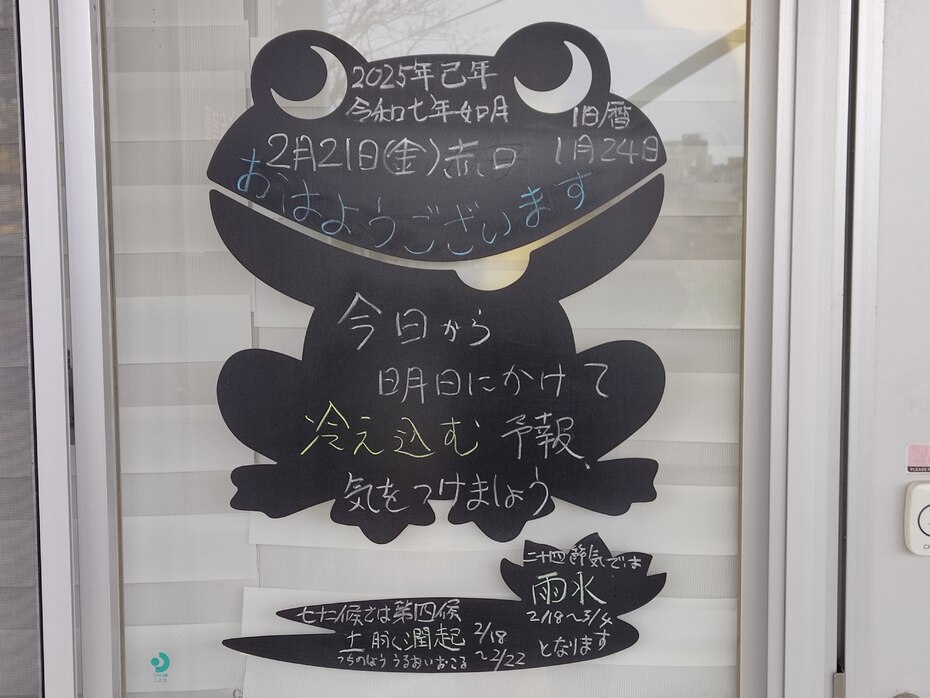 2025年己年
令和七年如月
旧暦
2月21日(金)赤口
1月24日
おはようございます
今日から
明日にかけて
冷え込む予報、
気をつけましょう
二十四節気では
雨水
2/18〜3/4
となります
七十二候では第四候
土脉潤起
2/18
〜2/22
つちのしょう うるおいおこる